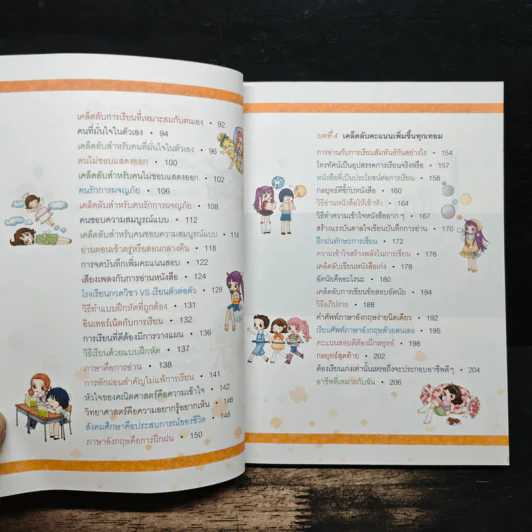 เคล็ดลับการเรียนที่เหมาะสมกับตนเอง • 92
คนที่มั่นใจในตัวเอง • 94
เคล็ดลับสำหรับคนที่มั่นใจในตัวเอง • 96
คนไม่ชอบแสดงออก • 100
เคล็ดลับสำหรับคนไม่ชอบแสดงออก • 102
คนรักการผจญภัย • 106
เคล็ดลับสำหรับคนรักการผจญภัย • 108
คนชอบความสมบูรณ์แบบ • 112
เคล็ดลับสำหรับคนชอบความสมบูรณ์แบบ • 114
อ่านตอนเช้าตรู่หรือตอนกลางคืน • 118
การจดบันทึกเพิ่มคะแนนสอบ • 122
เสียงเพลงกับการอ่านหนังสือ • 124
โรงเรียนกวดวิชา VS เรียนตัวต่อตัว • 128
วิธีทำแบบฝึกหัดที่ถูกต้อง • 131
อินเทอร์เน็ตกับการเรียน • 132
การเรียนที่ดีต้องมีการวางแผน • 136
วิธีเรียนด้วยแบบฝึกหัด • 138
ภาษาคือการอ่าน • 138
การพักผ่อนสำคัญไม่แพ้การเรียน • 141
หัวใจของคณิตศาสตร์คือความเข้าใจ • 142
วิทยาศาสตร์คือความอยากรู้อยากเห็น • 146
สังคมศึกษาคือประสบการณ์ของชีวิต • 148
ภาษาอังกฤษคือการฝึกฝน • 150
บทที่ ๔ เคล็ดลับคะแนนเพิ่มขึ้นทุกเทอม
การอ่านกับการเรียนสัมพันธ์กันอย่างไร • 154
โทรทัศน์เป็นอุปสรรคการเรียนจริงหรือ • 157
หนังสือที่เป็นประโยชน์ต่อการเรียน • 158
กลยุทธ์ตีซี้กับหนังสือ • 160
วิธีอ่านหนังสือให้เข้าหัว • 164
วิธีทำความเข้าใจหนังสือยาก ๆ • 167
สร้างแรงบันดาลใจเขียนบันทึกการอ่าน • 170
ฝึกฝนทักษะการเขียน • 172
ความเข้าใจสร้างพลังในการเรียน • 176
เคล็ดลับเขียนหนังสือเก่ง • 178
อัตนัยคืออะไรนะ • 180
เคล็ดลับการเขียนข้อสอบอัตนัย • 184
วิธีอภิปราย • 188
คำศัพท์ภาษาอังกฤษง่ายนิดเดียว • 192
เรียนศัพท์ภาษาอังกฤษด้วยตนเอง • 195
คะแนนสอบดีต้องมีกลยุทธ์ • 198
กลยุทธ์สุดท้าย • 202
ต้องเรียนเก่งเท่านั้นเหรอถึงจะประกอบอาชีพดีๆ • 204
อาชีพที่เหมาะกับฉัน • 206